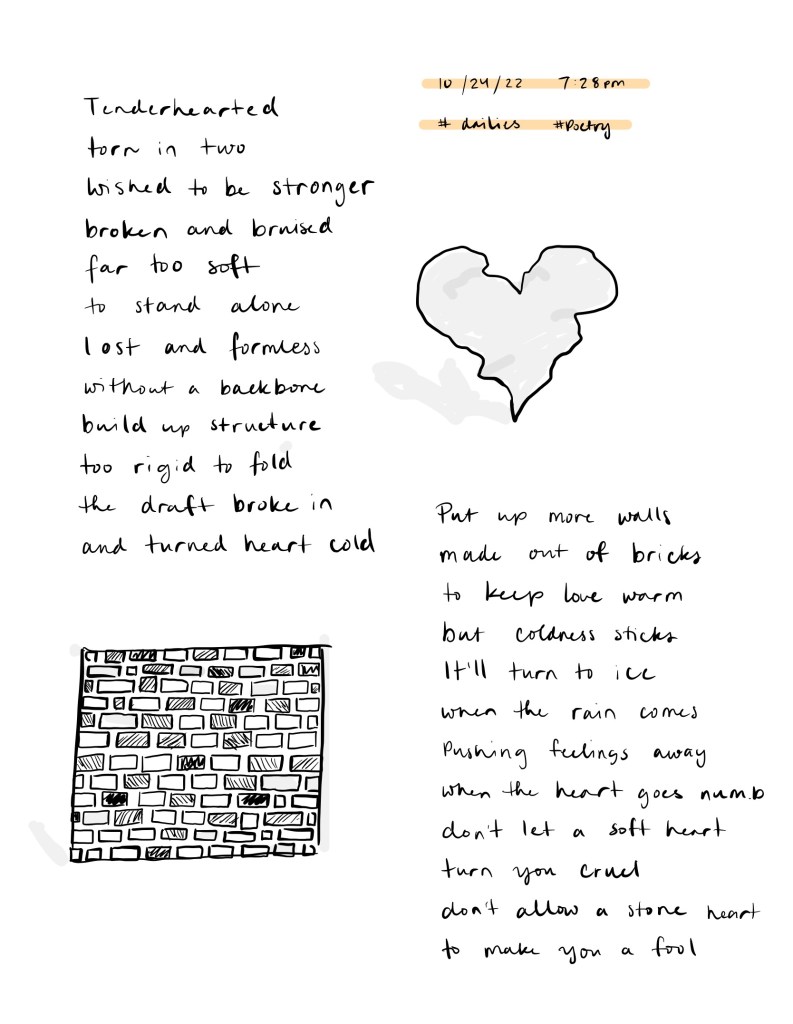 10/24/22 7:28pm
# dailies #Poetry
Tenderhearted
torn in two
wished to be stronger
broken and bruised
far too soft
to stand alone
lost and formless
without a backbone
build up structure
too rigid to fold
the draft broke in
and turned heart cold
Put up more walls
made out of bricks
to keep love warm
but coldness sticks
It'll turn to ice
when the rain comes
Pushing feelings away
when the heart goes numb
don't let a soft heart
turn you cruel
don't allow a stone heart
to make you a fool